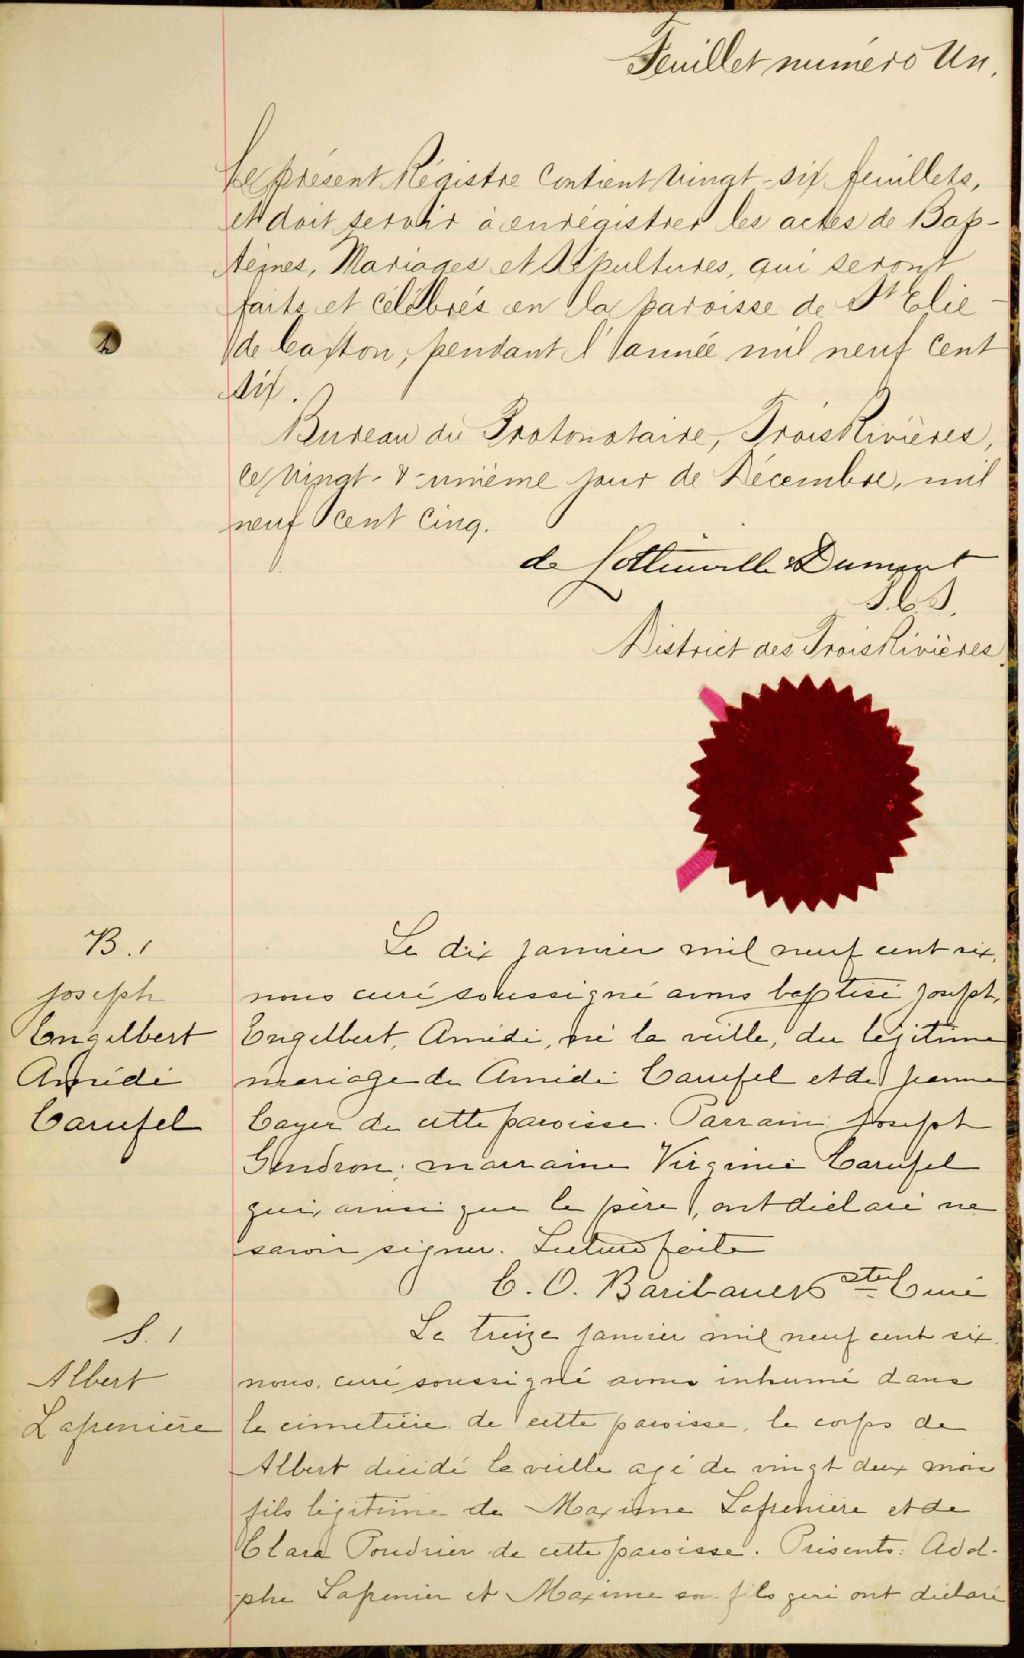 Feuillet numéro Un.
Le présent Régistre contient vingt-six feuillets,
et doit servir à enrégistrer les actes de Bap-
têmes, Mariages et Sépultures, qui seront
faits et célébrés en la paroisse de St Elie
de Caxton, pendant l'année mil neuf cent
six.
Bureau du Protonotaire, Trois Rivières,
ce vingt-&-unième jour de Décembre, mil
neuf cent cinq.
de Lottinville & Dumont
P.C.S.
District des Trois Rivières.
B. 1
Joseph
Engelbert
Amédé
Carufel
Le dix janvier mil neuf cent six,
nous curé soussigné avons baptisé Joseph,
Engelbert, Amédé, né la veille, du légitime
mariage de Amédé Carufel et de Jeanne
Cayer de cette paroisse. Parrain Joseph
Gendron; marraine Virginie Carufel
qui, ainsi que le père, ont déclaré ne
savoir signer. Lecture faite
C. O. Baribault Ptre Curé
S. 1
Albert
Lafrenière
Le treize janvier mil neuf cent six
nous, curé soussigné avons inhumé dans
le cimetière de cette paroisse, le corps de
Albert décédé la veille agé de vingt deux mois
fils légitime de Maxime Lafrenière et de
Clara Poudrier de cette paroisse. Présents: Adol-
phe Lafrenier et Maxime son fils qui ont déclaré